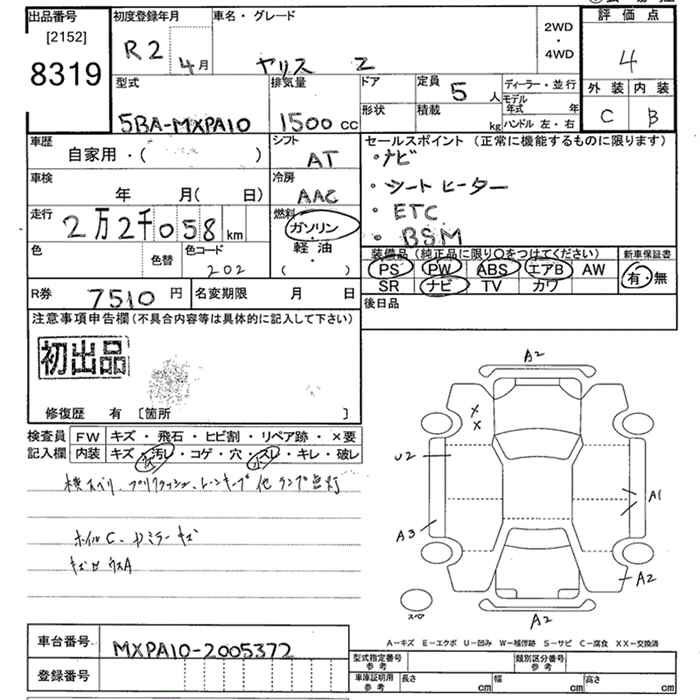 出品番号 初度登録年月 車名・グレード 2WD・4WD 評価点
[2152]
8319 R2 4月 ヤリス Z 4
型式 排気量 ドア 定員 5人 ディーラー・並行 外装 内装
5BA-MXPA10 1500cc 形状 積載 kg モデル年式 年 ハンドル 左・右 C B
車歴 自家用・( ) シフト AT セールスポイント (正常に機能するものに限ります)
・ナビ
車検 年 月( 日) 冷房 AAC ・シートヒーター
走行 2万2千058km 燃料 ガソリン・軽油・( ) ・ETC
・BSM
色 色替 色コード 202 装備品(純正品に限り○をつけてください) 新車保証書
PS PW ABS エアB AW 有・無
SR ナビ TV カワ
R券 7510円 名変期限 月 日 後日品
注意事項申告欄(不具合内容等は具体的に記入して下さい)
初出品
修復歴 有 [箇所 ]
検査員記入欄 FW キズ・飛石・ヒビ割・リペア跡・×要
内装 キズ・汚レ・コゲ・穴・スレ・キレ・破レ
横スベリ、プリクラッシュ、レーンキープ他ランプ点灯
ホイルC
A2
X
X
U2
A1
A3
A2
スペア
A2
A－キズ E－エクボ U－凹み W－補修跡 S－サビ C－腐食 XX－交換済
車台番号 MXPA10-2005372
登録番号
型式指定番号 参考 類別区分番号 参考
車庫証明用 参考 長さ cm 幅 cm 高さ cm